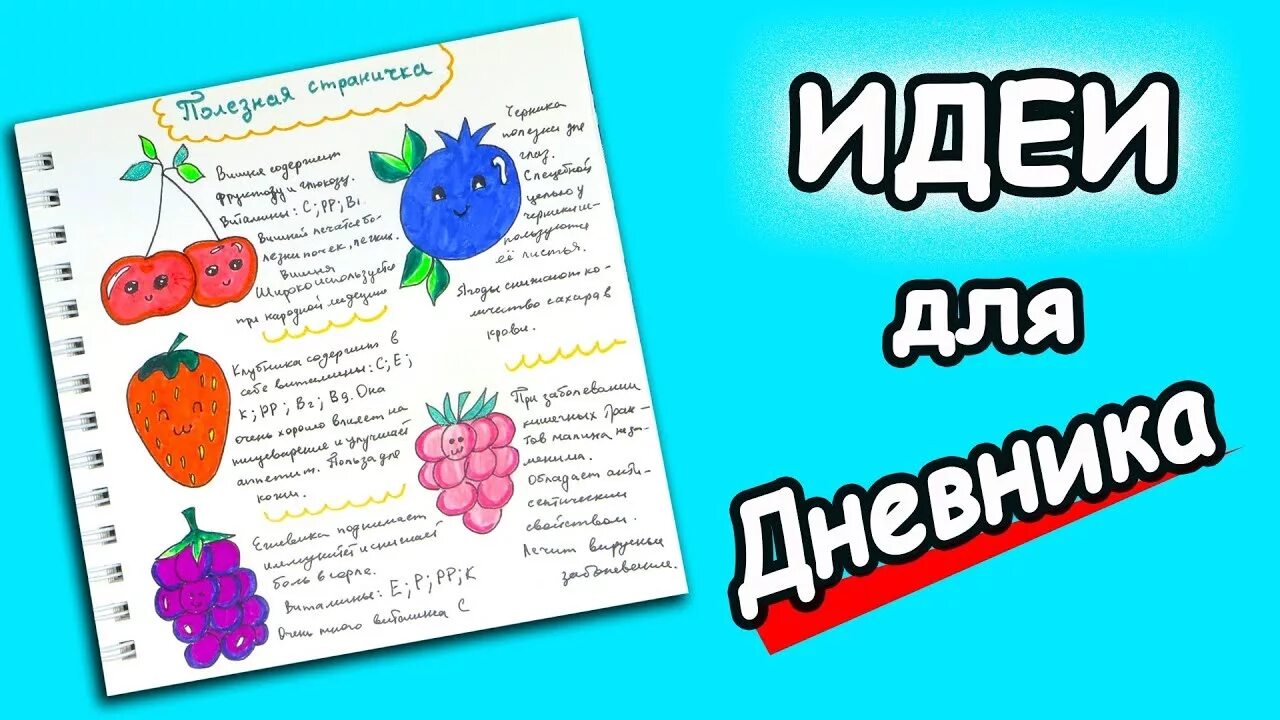 Полезная страничка
Вишня содержит
фруктозу и глюкозу.
Витамины: С; РР; В1
Вишней лечатся бо-
лезни почек, легких.
Вишня
Широко используется
при народной медецине
Черника
полезна для
глаз.
С лецебной
целью у
черники ис-
пользуются
её листья.
Ягоды снижают ко-
личество сахара в
крови.
Клубника содержит в
себе витамины: С; Е;
К; РР; В2; В9. Она
очень хорошо влияет на
пищеварение и улучшает
аппетит. Польза для
кожи.
При заболевании
кишечных трак-
тов малина неза-
менима.
Обладает анти-
септическим
свойством.
Лечит вирусные
заболевание.
Ежевика поднимает
иммунитет и снимает
боль в горле.
Витамины: Е; Р; РР; К
Очень много витамина С
ИДЕИ
для
Дневника